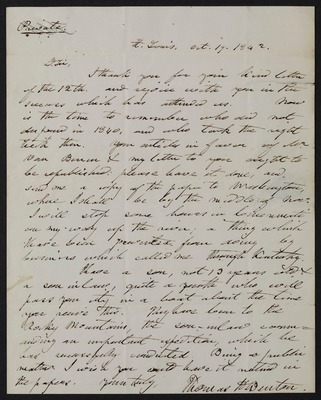 Private.
St. Louis, Oct. 17. 1842.
Sir,
I thank you for your kind letter
of the 12th. and rejoice with you in the
success which has attended us. Now
is the time to remember who did not
despond in 1840, and who took the right
tack then. Your articles in favor of Mr.
Van Buren & my letter to you ought to
be republished. please have it done, and
send me a copy of the paper to Washington,
where I shall be by the middle of Nov.
I will stop some hours in Cincinnati
on my way up the river, a thing which
I have been prevented from doing by
business which called me through Kentucky.
I have a son, not 13 years old &
a son in law, quite a youth, who will
pass your city in a boat about the time
you receive this. They have been to the
Rocky Mountains, the son-in-law comman-
ding an important expedition, which he
has successfully conducted. Being a public
matter I wish you would have it noticed in
the papers. Yours truly,
Thomas H. Benton.